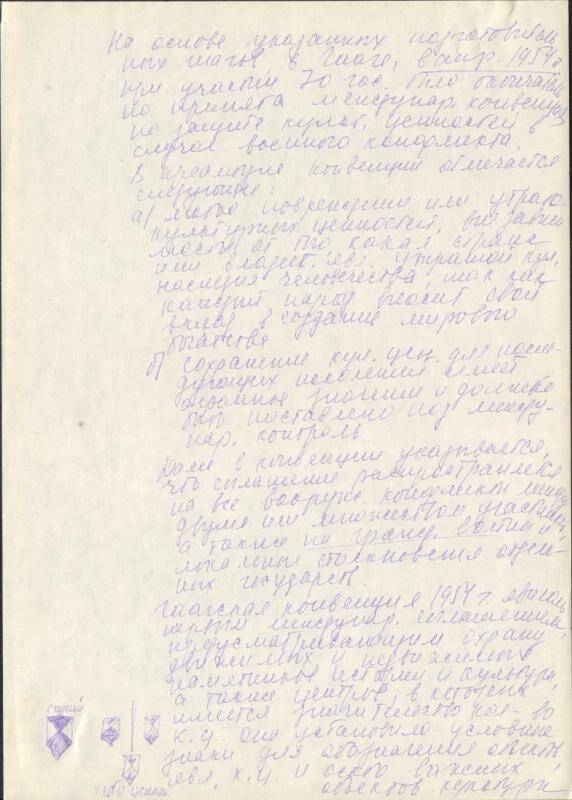 На основе указанных подготовитель-
ных шагов, в Гааге, в апр. 1954 г.
при участии 70 гос. было окончатель
но принята междунар. конвенция
по защите культ. ценностей в
случае военного конфликта.
В преамбуле конвенции отмечается
следующее:
а) любое повреждение или утрата
культурных ценностей, вне зависи
мости от того какая страна
ими владеет, явл. утратой кул.
наследия человечества, так как
каждый народ вносит свой
вклад в создание мирового
богатства
б) сохранение кул. цен. для после-
дующих поколений имеет
огромное значение и должно
быть поставлено под между-
нар. контроль
Далее в конвенции указывается,
что соглашение распространяется
на все вооруж. конфликты между
двумя или множеством участников,
а также на гражд. войны и
локальные столкновения отдель-
ных государств.
Гаагская конвенция 1954 г. явилась
первым междунар. соглашением,
предусматривающим охрану
движимых и недвижимых
памятников истории и культуры
а также центров, в которых
имеется значительное кол-во
к.ц. она установила условные
знаки для обозначения объектов
явл. к.ц. и особо важных
объектов культуры
синий